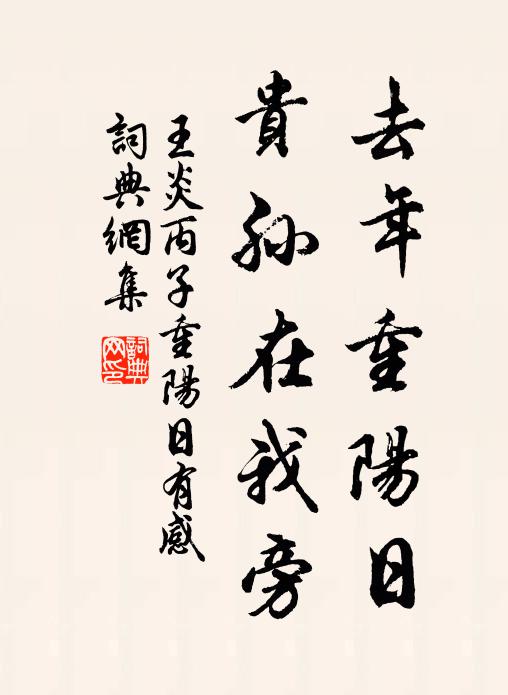 去年重陽日
貴孫在我旁
王炎丙子重陽日有感
詞典網集
詞典网印